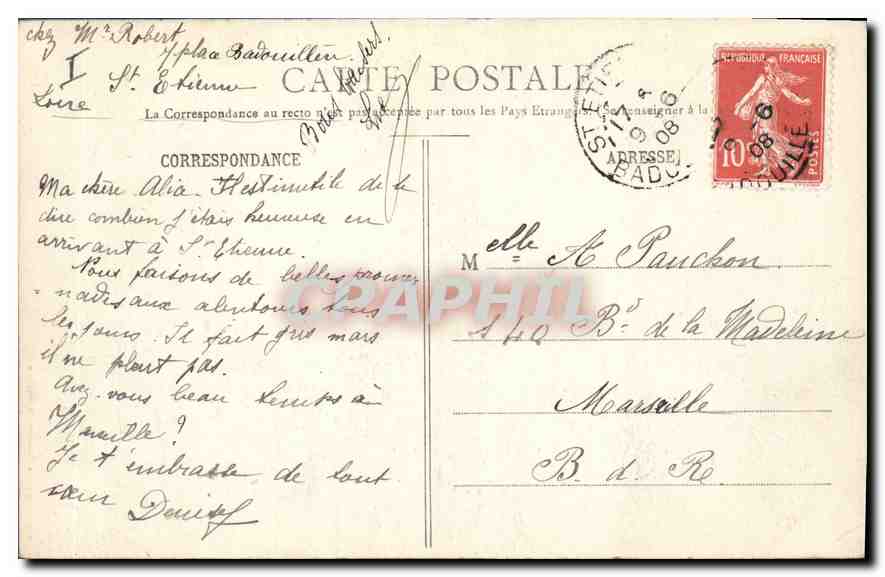 chez Mr Robert
7 place Badouillère
St Etienne
Loire
I
Bons baisers.
CARTE POSTALE
La Correspondance au recto n'est pas acceptée par tous les Pays Etrangers. (Se renseigner à la
CORRESPONDANCE
ADRESSE
Ma chère Alia. Il est inutile de te
dire combien j'étais heureuse en
arrivant à St Etienne.
Nous faisons de belles prome-
nades aux alentours tous
les jours. Il fait gris mais
il ne pleut pas.
Avez-vous beau temps à
Marseille?
Je t'embrasse de tout
cœur
Denise
Melle A Pauchon
140 Bd de la Madeleine
Marseille
B. d. R.
ST ETIE
17
9 -6
08
BADO
REPUBLIQUE FRANÇAISE
10
POSTES
9 -6
08
OUILLE
CPAPHIL